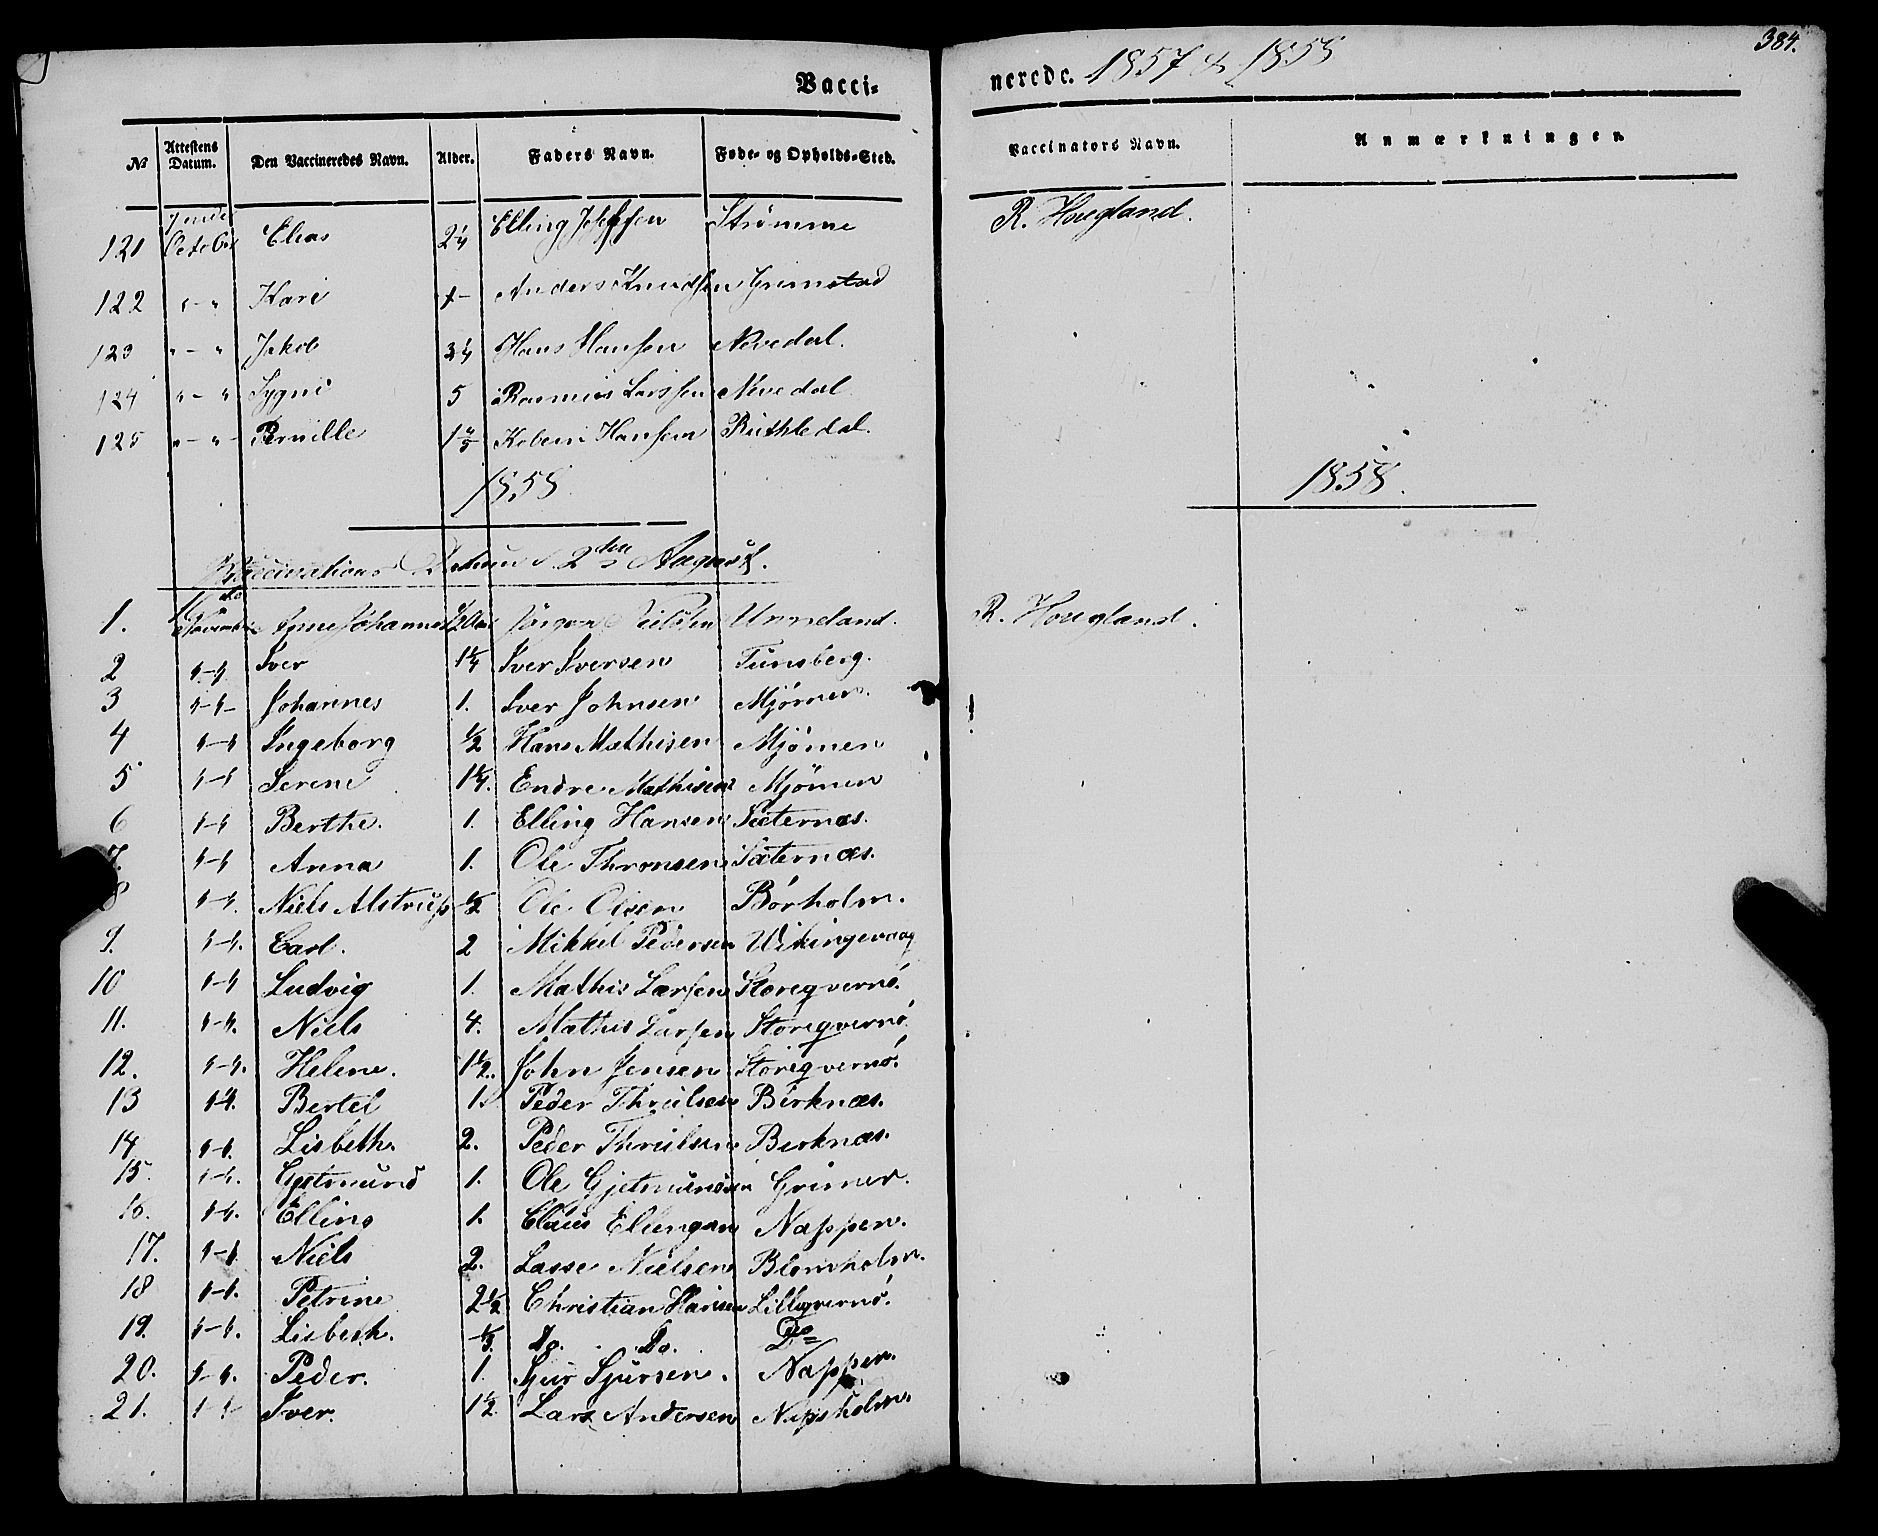 384.
Vacci- nerede. 1857 & 1858
No Attestens Datum. Den Vaccineredes Navn. Alder. Faders Navn. Føde- og Opholds-Sted. Vaccinators Navn. Anmærkninger.
121 October Elias 2¼ Elling Strømme R. Hougland.
122 "-" Kari 1- Anders Knudsen Grimstad
123 "-" Jakob 3¼ Hans Hansen Nevedal.
124 "-" Sygni 5 Rasmus Larssen Nevedal
125 "-" Pernille Hansen
1858. 1858.
Vaccinations Datum d. 2den August.
1. November Anne Johanne Unneland. R. Hougland.
2 "-" Iver 1¼ Iver Iversen Tunsberg.
3 "-" Johannes 1. Iver Johnsen Mjömen.
4 "-" Ingeborg ½ Hans Mathisen Mjömen
5 "-" Serene 1¼. Endre Mathisen Mjömen
6 "-" Berthe. 1. Elling Hansen Sæternæs.
7. "-" Anna 1. Ole Thronsen Sæternæs.
8 "-" Niels Alstrup ½ Ole Olsen Börholm.
9. "-" Carl. 2 Mikkel Pedersen Wikingevaag
10 "-" Ludvig 1. Mathis Larsen Storeqvernö.
11. "-" Niels 4. Mathis Larsen Storeqvernö
12. "-" Helene. 1½. John Jensen Storeqvernö.
13 "-" Bertel 1. Peder Thruilsen Birknæs.
14 "-" Lisbeth. 2. Peder Thruilsen Birknæs.
15. "-" Gjetmund 1. Ole Gjetmundsen Grimen.
16. "-" Elling 1. Claus Nappen.
17. "-" Niels 2. Lasse Nielsen Blomholm.
18 "-" Petrine 2½ Christian Hansen Lilleqvernö.
19. "-" Lisbeth. ⅓. Do. Do. Do
20. "-" Peder. 1. Sjur Sjursen. Nappen.
21. "-" Iver. 1½ Lars Andersen Napsholm.